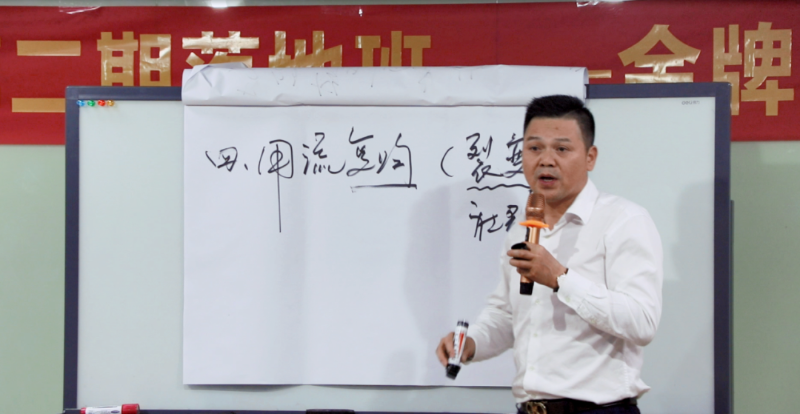 二期落地班 一金牌
四、用流复购(裂变
社